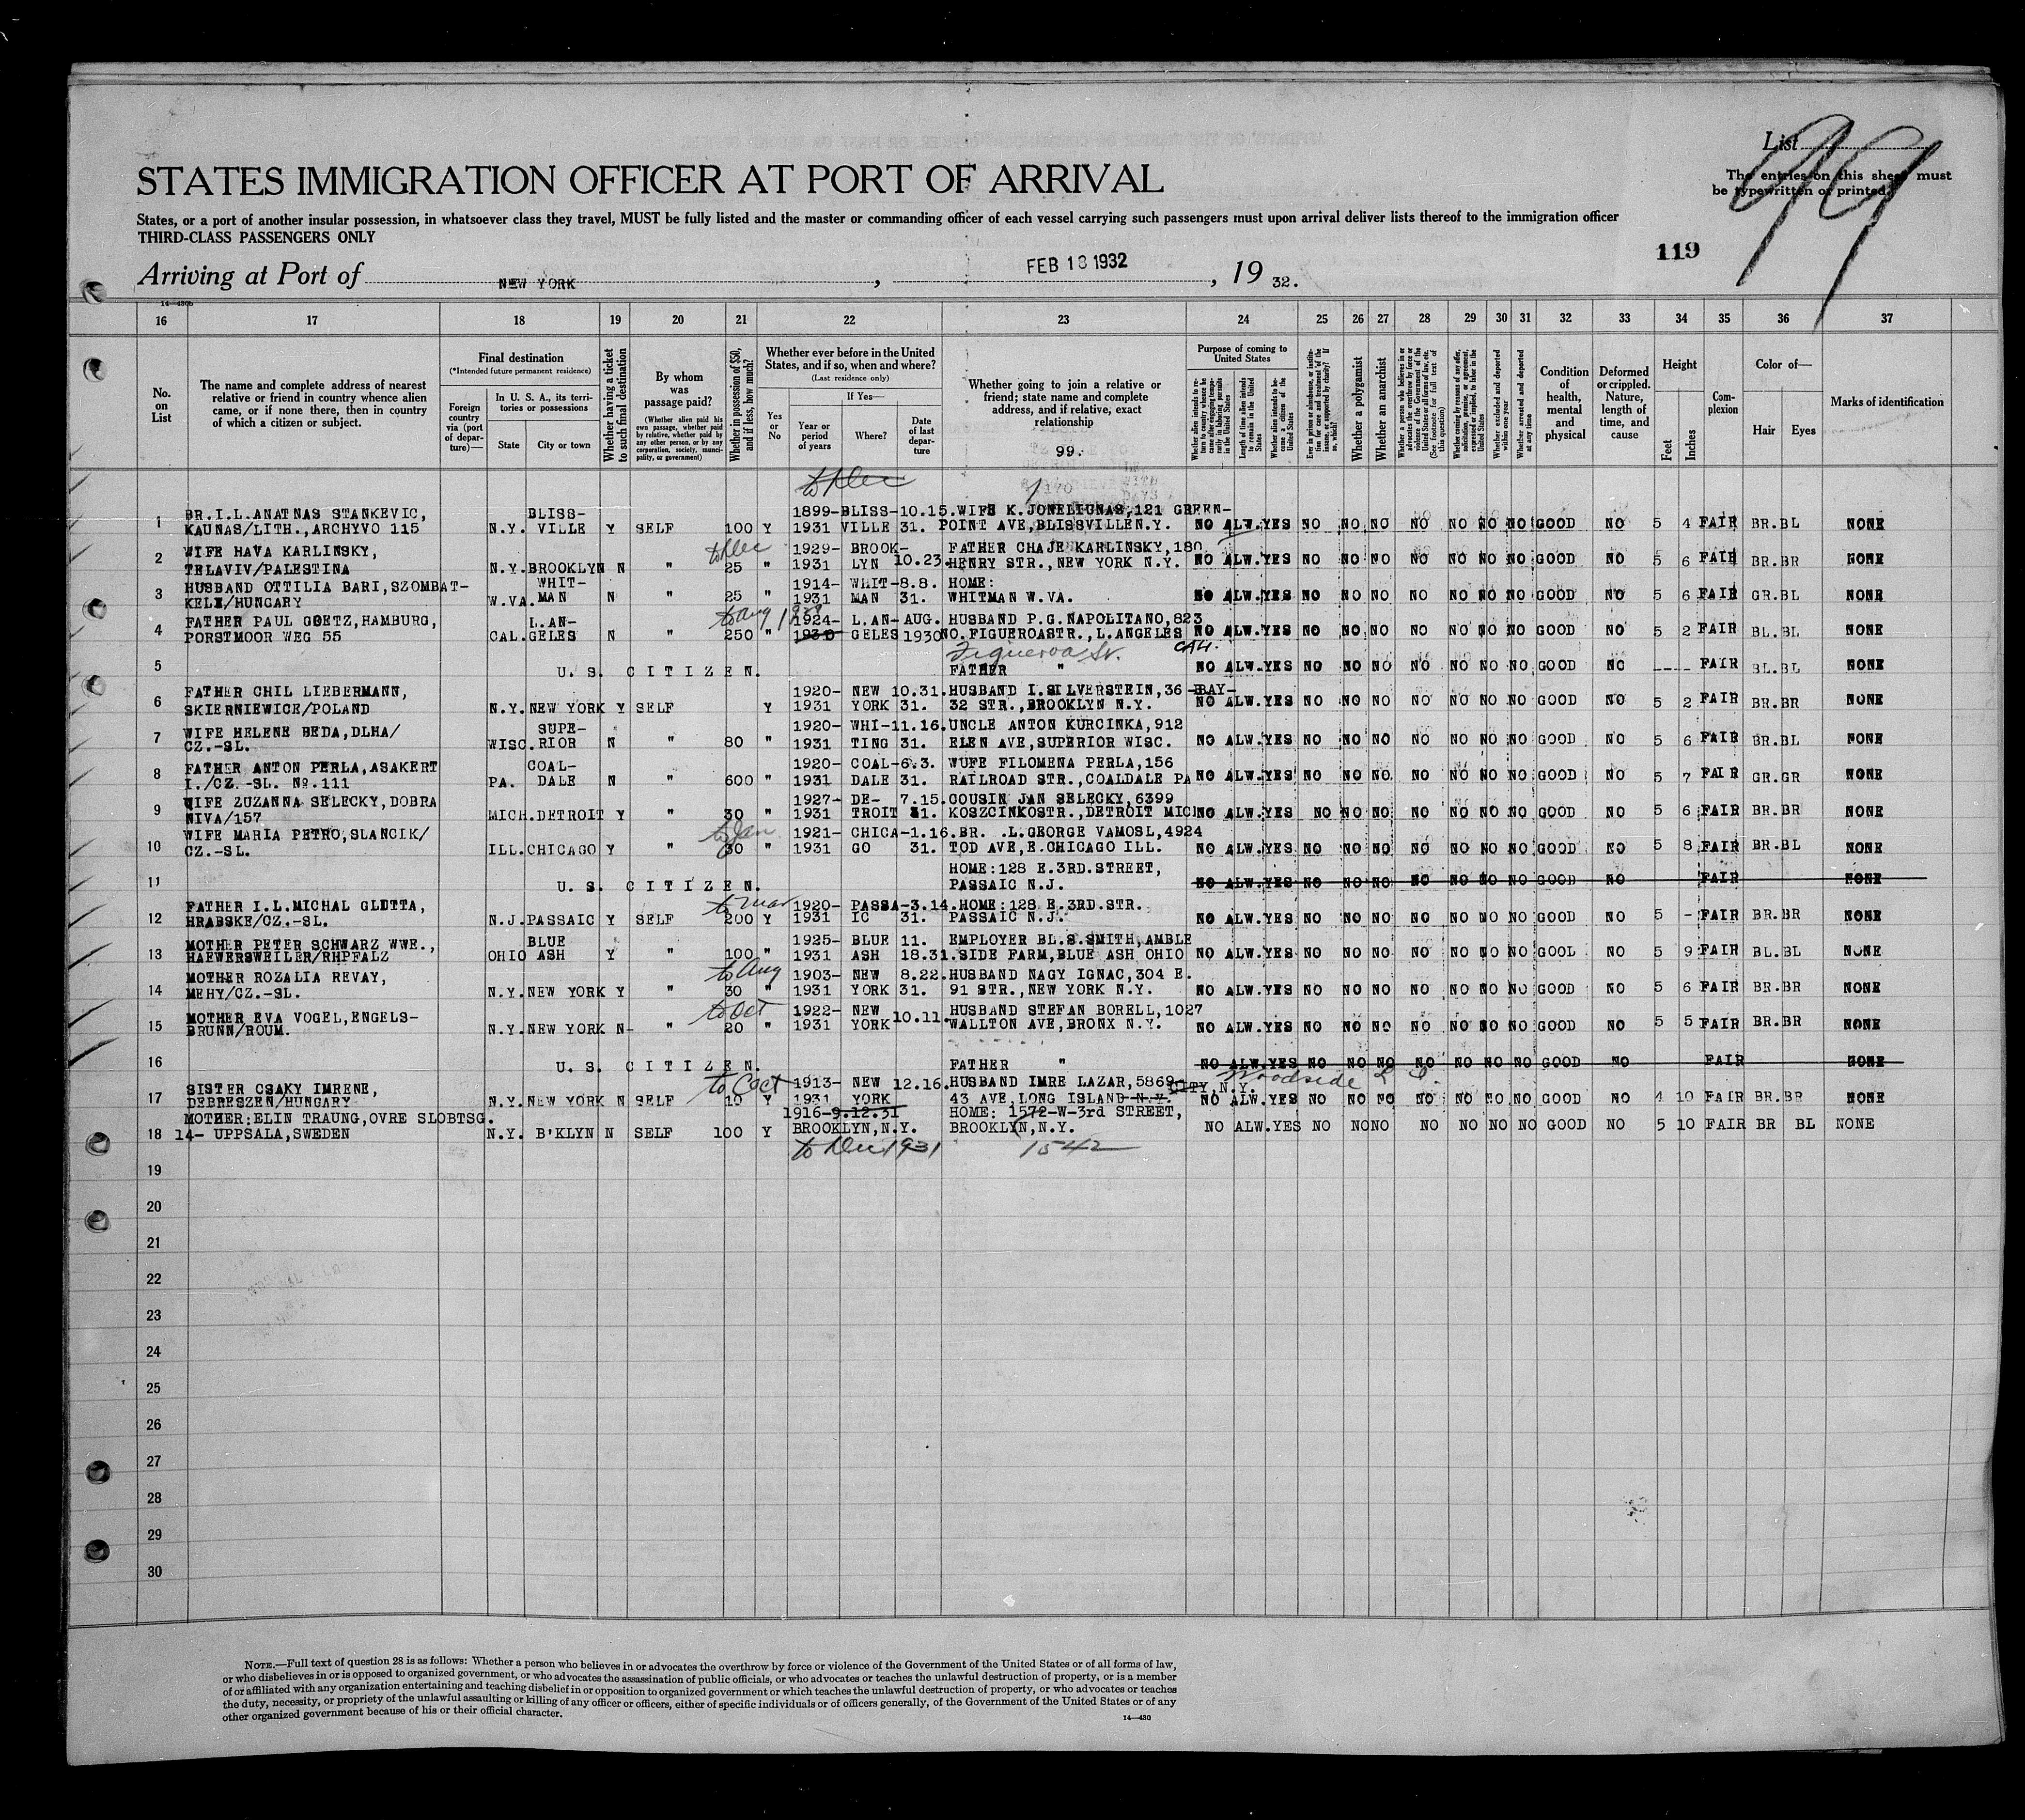 List
99
The entries on this sheet must
be typewritten or printed.
STATES IMMIGRATION OFFICER AT PORT OF ARRIVAL
States, or a port of another insular possession, in whatsoever class they travel, MUST be fully listed and the master or commanding officer of each vessel carrying such passengers must upon arrival deliver lists thereof to the immigration officer
THIRD-CLASS PASSENGERS ONLY
119
Arriving at Port of NEW YORK, FEB 18 1932, 19 32.
14—430b
16 17 18 19 20 21 22 23 24 25 26 27 28 29 30 31 32 33 34 35 36 37
No. on List
The name and complete address of nearest relative or friend in country whence alien came, or if none there, then in country of which a citizen or subject.
Final destination
(*Intended future permanent residence)
Foreign country via (port of departure)—
In U. S. A., its territories or possessions
State
City or town
Whether having a ticket to such final destination
By whom was passage paid?
(Whether alien paid his own passage, whether paid by relative, whether paid by any other person, or by any corporation, society, municipality, or government)
Whether in possession of $50, and if less, how much?
Whether ever before in the United States, and if so, when and where?
(Last residence only)
Yes or No
If Yes—
Year or period of years
Where?
Date of last departure
Whether going to join a relative or friend; state name and complete address, and if relative, exact relationship
99.
Purpose of coming to United States
Whether alien intends to return to country whence he came after engaging temporarily in laboring pursuits in the United States
Length of time alien intends to remain in the United States
Whether alien intends to become a citizen of the United States
Ever in prison or almshouse, or institution for care and treatment of the insane, or supported by charity? If so, which?
Whether a polygamist
Whether an anarchist
Whether a person who believes in or advocates the overthrow by force or violence of the Government of the United States or of all forms of law, etc. (See footnote for full text of this question)
Whether coming by reason of any offer, solicitation, promise, or agreement, expressed or implied, to labor in the United States
Whether excluded and deported within one year
Whether arrested and deported at any time
Condition of health, mental and physical
Deformed or crippled. Nature, length of time, and cause
Height
Feet
Inches
Complexion
Color of—
Hair
Eyes
Marks of identification
to Dec
BR.I.L.ANATNAS STANKEVIC, BLISS- 1899-BLISS-10.15.WIFE K.JONELIUNAS,121 GREEN-
1 KAUNAS/LITH.,ARCHYVO 115 N.Y. VILLE Y SELF 100 Y 1931 VILLE 31. POINT AVE,BLISSVILLEN.Y. NO ALW.YES NO NO NO NO NO NO NO GOOD NO 5 4 FAIR BR.BL NONE
to Dec
2 WIFE HAVA KARLINSKY, 1929- BROOK- FATHER CHAJE KARLINSKY,180
TELAVIV/PALESTINA N.Y.BROOKLYN N " 25 " 1931 LYN 10.23.HENRY STR.,NEW YORK N.Y. NO ALW.YES NO NO NO NO NO NO NO GOOD NO 5 6 FAIR BR.BR NONE
HUSBAND OTTILIA BARI,SZOMBAT- WHIT- 1914- WHIT-8.8. HOME:
3 KELE/HUNGARY W.VA. MAN N " 25 " 1931 MAN 31. WHITMAN W.VA. NO ALW.YES NO NO NO NO NO NO NO GOOD NO 5 6 FAIR GR.BL NONE
to Aug 1931
FATHER PAUL GOETZ,HAMBURG, L.AN- 1924- L.AN-AUG. HUSBAND P.G.NAPOLITANO,823
4 PORSTMOOR WEG 55 CAL.GELES N " 250 " 1930 GELES 1930 NO.FIGUEROASTR.,L.ANGELES NO ALW.YES NO NO NO NO NO NO NO GOOD NO 5 2 FAIR BL.BL NONE
Figueroa Str. CAL.
5 U. S. CITIZEN. FATHER " NO ALW.YES NO NO NO NO NO NO NO GOOD NO ---- FAIR BL.BL NONE
FATHER CHIL LIEBERMANN, 1920- NEW 10.31.HUSBAND I.SILVERSTEIN,36 -BAY-
6 SKIERNIEWICE/POLAND N.Y.NEW YORK Y SELF Y 1931 YORK 31. 32 STR.,BROOKLYN N.Y. NO ALW.YES NO NO NO NO NO NO NO GOOD NO 5 2 FAIR BR.BR NONE
WIFE HELENE BEDA,DLHA/ SUPE- 1920- WHI-11.16.UNCLE ANTON KURCINKA,912
7 CZ.-SL. WISC.RIOR N " 80 " 1931 TING 31. ELEN AVE,SUPERIOR WISC. NO ALW.YES NO NO NO NO NO NO NO GOOD NO 5 6 FAIR BR.BL NONE
FATHER ANTON PERLA,ASAKERT COAL- 1920- COAL-6.3. WUFE FILOMENA PERLA,156
8 I./CZ.-SL. No.111 PA. DALE N " 600 " 1931 DALE 31. RAILROAD STR.,COALDALE PA NO ALW.YES NO NO NO NO NO NO NO GOOD NO 5 7 FAIR GR.GR NONE
WIFE ZUZANNA SELECKY,DOBRA 1927- DE- 7.15.COUSIN JAN SELECKY,6399
9 NIVA/157 MICH.DETROIT Y " 30 " 1931 TROIT 31. KOSZCINKOSTR.,DETROIT MICH NO ALW.YES NO NO NO NO NO NO NO GOOD NO 5 6 FAIR BR.BR NONE
to Jan
WIFE MARIA PETRO,SLANCIK/ 1921- CHICA-1.16.BR. .L.GEORGE VAMOSL,4924
10 CZ.-SL. ILL.CHICAGO Y " 30 " 1931 GO 31. TOD AVE,E.CHICAGO ILL. NO ALW.YES NO NO NO NO NO NO NO GOOD NO 5 8 FAIR BR.BL NONE
HOME:128 E.3RD.STREET,
11 U. S. CITIZEN. PASSAIC N.J. NO ALW.YES NO NO NO NO NO NO NO GOOD NO FAIR NONE
to Mar
FATHER I.L.MICHAL GLDTTA, 1920- PASSA-3.14.HOME:128 E.3RD.STR.
12 HRABSKE/CZ.-SL. N.J.PASSAIC Y SELF 200 Y 1931 IC 31. PASSAIC N.J. NO ALW.YES NO NO NO NO NO NO NO GOOD NO 5 - FAIR BR.BR NONE
MOTHER PETER SCHWARZ WWE., BLUE 1925- BLUE 11. EMPLOYER BL.S.SMITH,AMBLE
13 HAEWERSWEILER/RHPFALZ OHIO ASH Y " 100 " 1931 ASH 18.31.SIDE FARM,BLUE ASH OHIO NO ALW.YES NO NO NO NO NO NO NO GOOL NO 5 9 FAIR BL.BL NONE
to Aug
MOTHER ROZALIA REVAY, 1903- NEW 8.22.HUSBAND NAGY IGNAC,304 E.
14 MEHY/CZ.-SL. N.Y.NEW YORK Y " 30 " 1931 YORK 31. 91 STR.,NEW YORK N.Y. NO ALW.YES NO NO NO NO NO NO NO GOOD NO 5 6 FAIR BR.BR NONE
to Oct
MOTHER EVA VOGEL,ENGELS- 1922- NEW HUSBAND STEFAN BORELL,1027
15 BRUNN/ROUM. N.Y.NEW YORK N- " 20 " 1931 YORK 10.11.WALLTON AVE,BRONX N.Y. NO ALW.YES NO NO NO NO NO NO NO GOOD NO 5 5 FAIR BR.BR NONE
16 U. S. CITIZEN. FATHER " NO ALW.YES NO NO NO NO NO NO NO GOOD NO FAIR NONE
to Oct Woodside L I.
SISTER CSAKY IMRENE, 1913- NEW 12.16.HUSBAND IMRE LAZAR,5869- CITY,N.Y.
17 DEBRESZEN/HUNGARY N.Y.NEW YORK N SELF 10 Y 1931 YORK 43 AVE,LONG ISLAND N.Y. NO ALW.YES NO NO NO NO NO NO NO GOOD NO 4 10 FAIR BR.BR NONE
MOTHER:ELIN TRAUNG,OVRE SLOBTSG. 1916-9.12.31 HOME: 1572-W-3rd STREET,
18 14- UPPSALA,SWEDEN N.Y. B'KLYN N SELF 100 Y BROOKLYN,N.Y. BROOKLYN,N.Y. NO ALW.YES NO NO NO NO NO NO NO GOOD NO 5 10 FAIR BR BL NONE
to Dec 1931 1542
19
20
21
22
23
24
25
26
27
28
29
30
NOTE.—Full text of question 28 is as follows: Whether a person who believes in or advocates the overthrow by force or violence of the Government of the United States or of all forms of law,
or who disbelieves in or is opposed to organized government, or who advocates the assassination of public officials, or who advocates or teaches the unlawful destruction of property, or is a member
of or affiliated with any organization entertaining and teaching disbelief in or opposition to organized government or which teaches the unlawful destruction of property, or who advocates or teaches
the duty, necessity, or propriety of the unlawful assaulting or killing of any officer or officers, either of specific individuals or of officers generally, of the Government of the United States or of any
other organized government because of his or their official character.
14—430